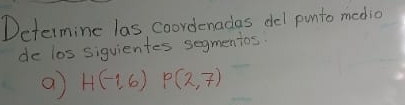 Determine las coordenadas del punto medio
de los siguientes segmentos.
a) H(-1,6) P(2,7)